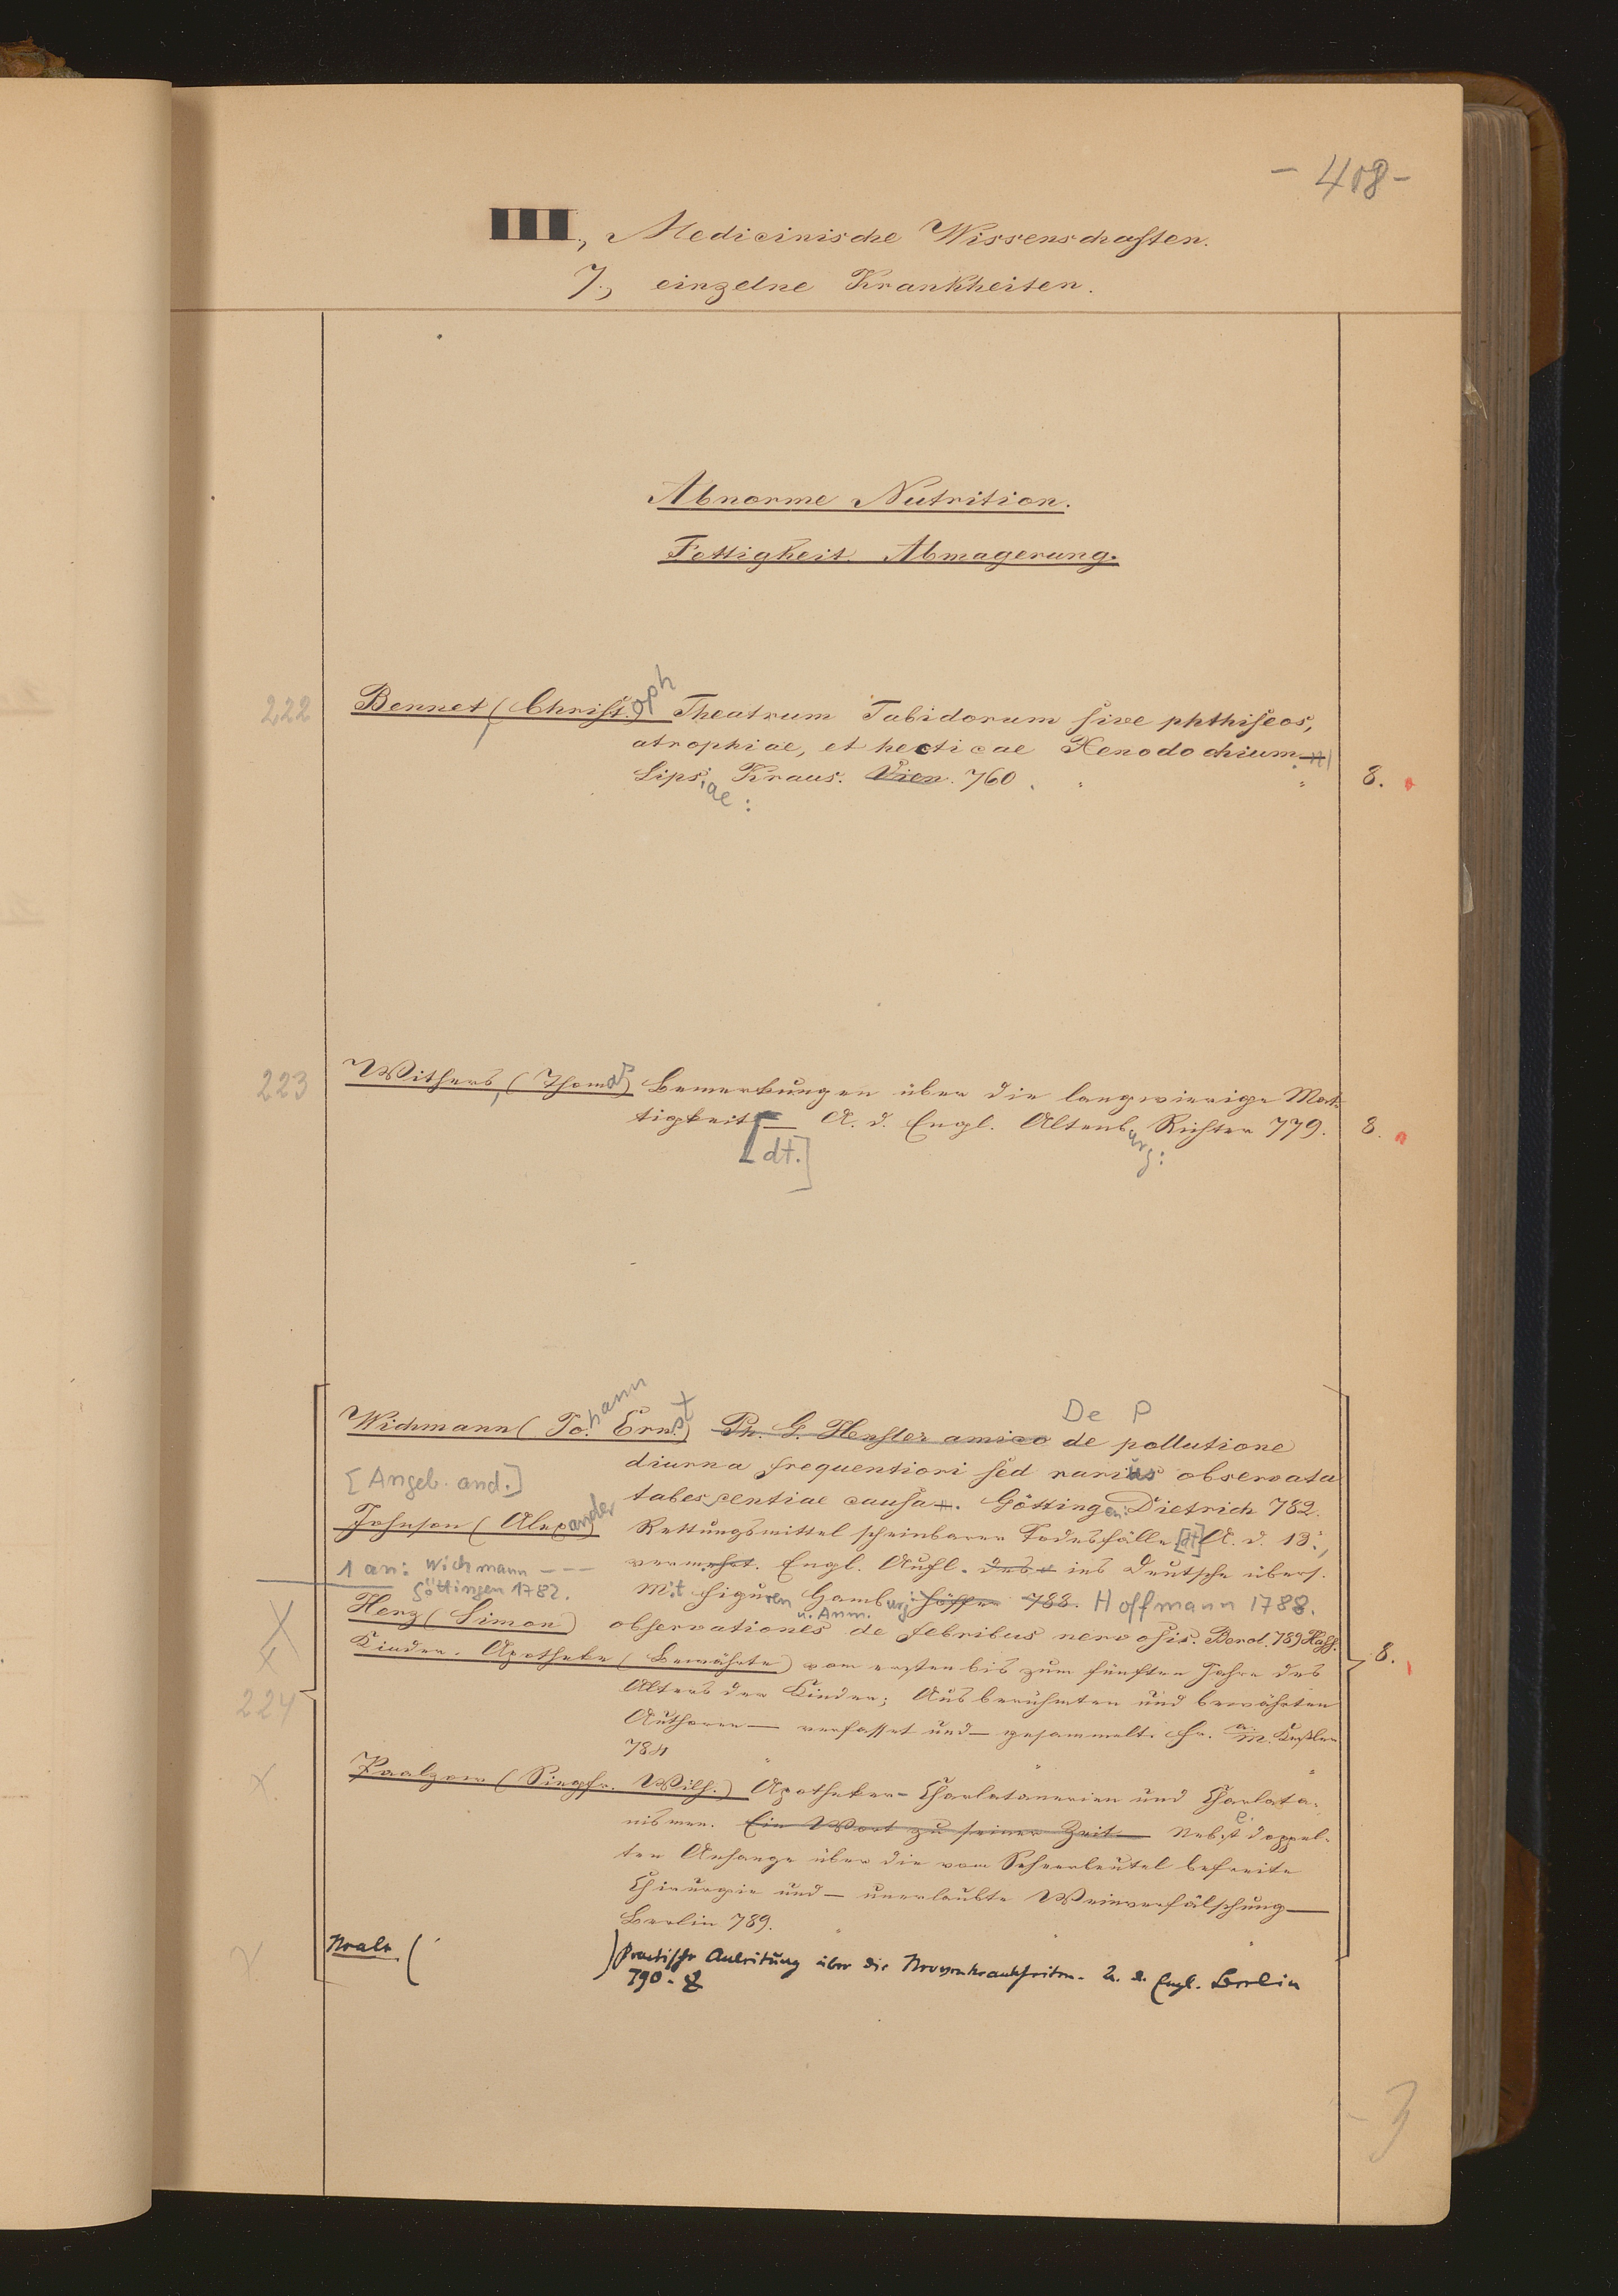 - 408 -
III., Medicinische Wissenschaften.
7., einzelne Krankheiten.
Abnorme Nutrition.
Fettigkeit. Abmagerung.
222 Bennet, (Christoph) Theatrum Tabidorum sive phthiseos,
atrophiae, et hecticae Xenodochium.
Lipsiae: Kraus. Vien. 760. 8.
223 Withers, (Thomas) Bemerkungen über die langwierige Mat-
tigkeit — A. d. Engl. Altenburg: Richter 779. 8.
[dt.]
De P
Wichmann (Johann Ernst) Ph. G. Hensler amico de pollutione
diurna frequentiori sed rarius observata
[Angeb. and.]
tabescentiae causa. Göttingen: Dietrich 782.
Johnson (Alexander) Rettungsmittel scheinbarer Todesfälle [dt] A. d. 13.,
1 an: Wichmann - - -
Göttingen 1782.
vermehrt. Engl. Aufl. ins Deutsche übers.
Mit Figuren Hamburg: 788. Hoffmann 1788.
u. Anm.
Herz (Simon) observationes de febribus nervosis. Berol. 789
Kinder. Apotheke (Bewährte) vom ersten bis zum fünften Jahre des 8.
224 Alters der Kinder; Aus berühmten und bewährten
Authoren — verfasset und — gesammelt. Fr. a. M. Keßler
784
Paalzow (Siegfr. Wilh.) Apotheker-Charlatanerien und Charlata-
nismen. Ein Wort zu seiner Zeit — Nebst e. doppel-
ten Anhange über die vom Scheerbeutel befreite
Chirurgie und — unerlaubte Weinverfälschung —
Berlin 789.
Neale ( ) Practische Anleitung über die Nervenkrankheiten. A. d. Engl. Berlin
790.
3